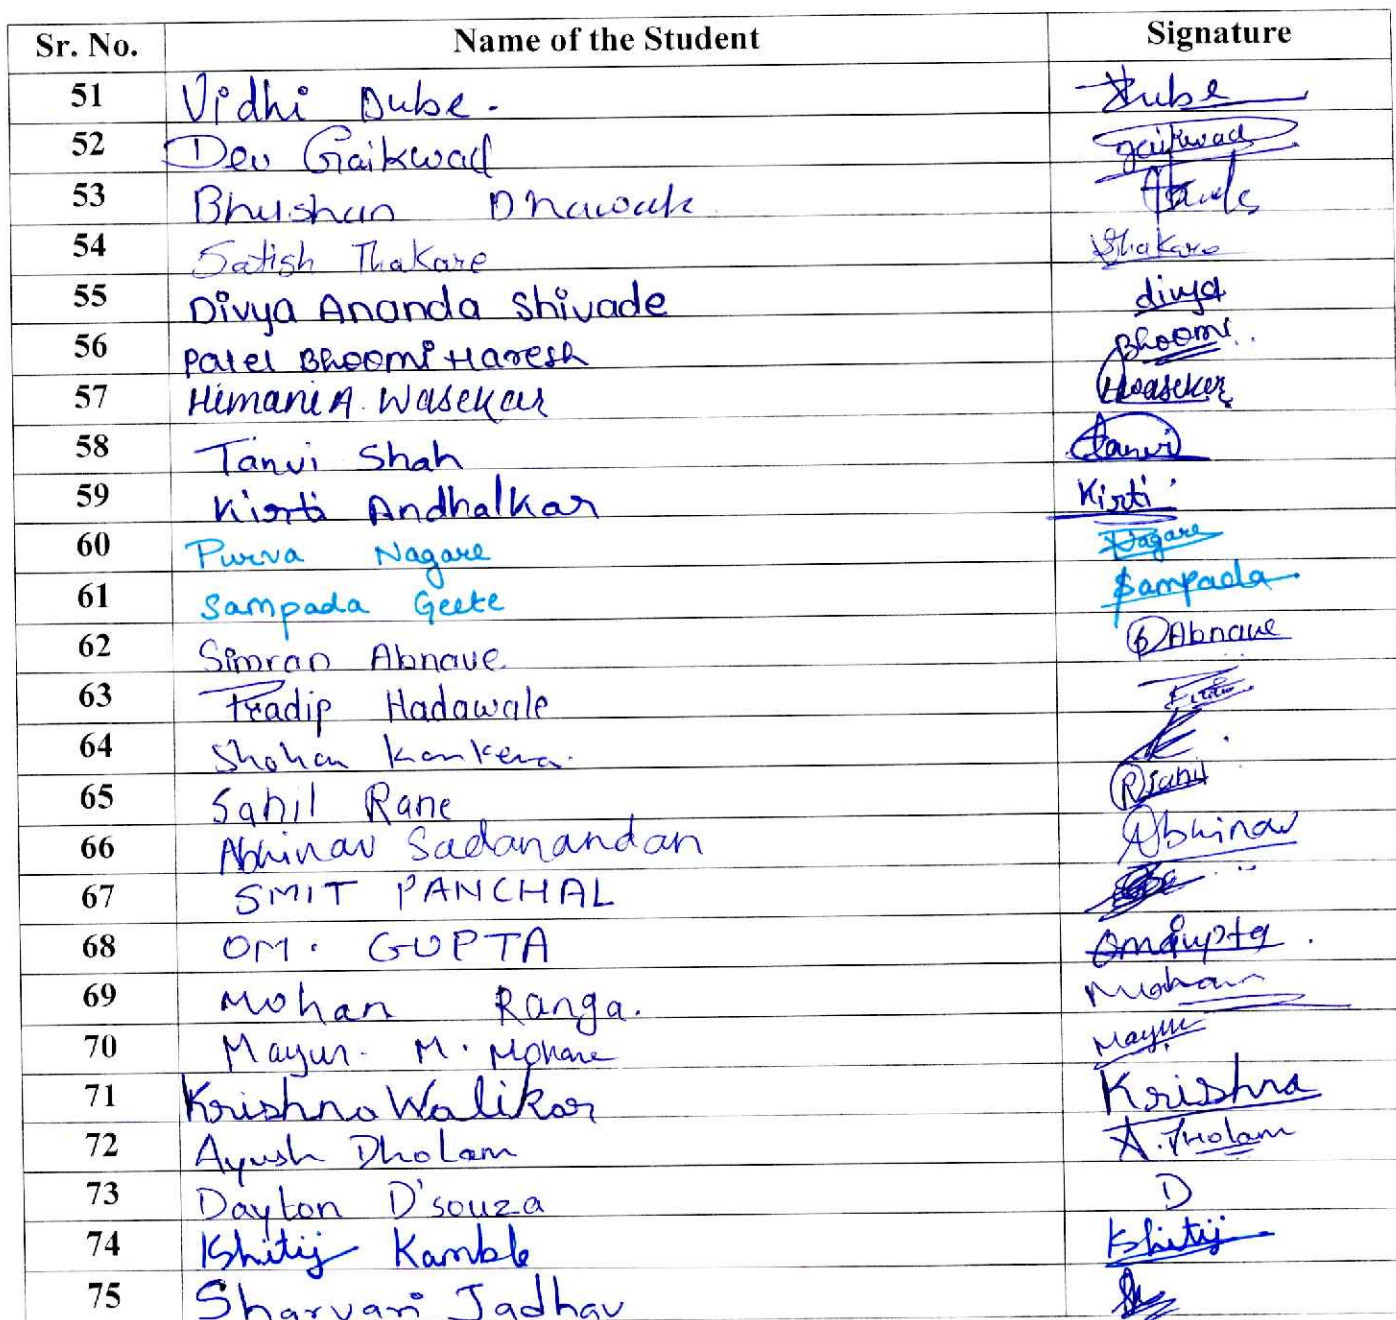 Sr. No. Name of the Student Signature
51 Vidhi Dube. Dube
52 Dev Gaikwad gaikwad
53 Bhushan Dhawale
54 Satish Thakare Thakare
55 Divya Ananda Shivade divya
56 Patel Bhoomi Haresh Bhoomi
57 Himani A. Wasekar HWasekar
58 Tanvi Shah Tanvi
59 Kirti Andhalkar Kirti
60 Purva Nagare Nagare
61 Sampada Geete Sampada
62 Simran Abnave. Abnave
63 Pradip Hadawale
64 Shohan
65 Sahil Rane RSahil
66 Abhinav Sadanandan Abhinav
67 SMIT PANCHAL
68 OM. GUPTA OmGupta
69 Mohan Ranga. Mohan
70 Mayur. M. Mohane Mayur
71 Krishna Walikar Krishna
72 Ayush Dholam A. Dholam
73 Dayton D'souza D
74 Kshitij Kamble Kshitij
75 Sharvari Jadhav